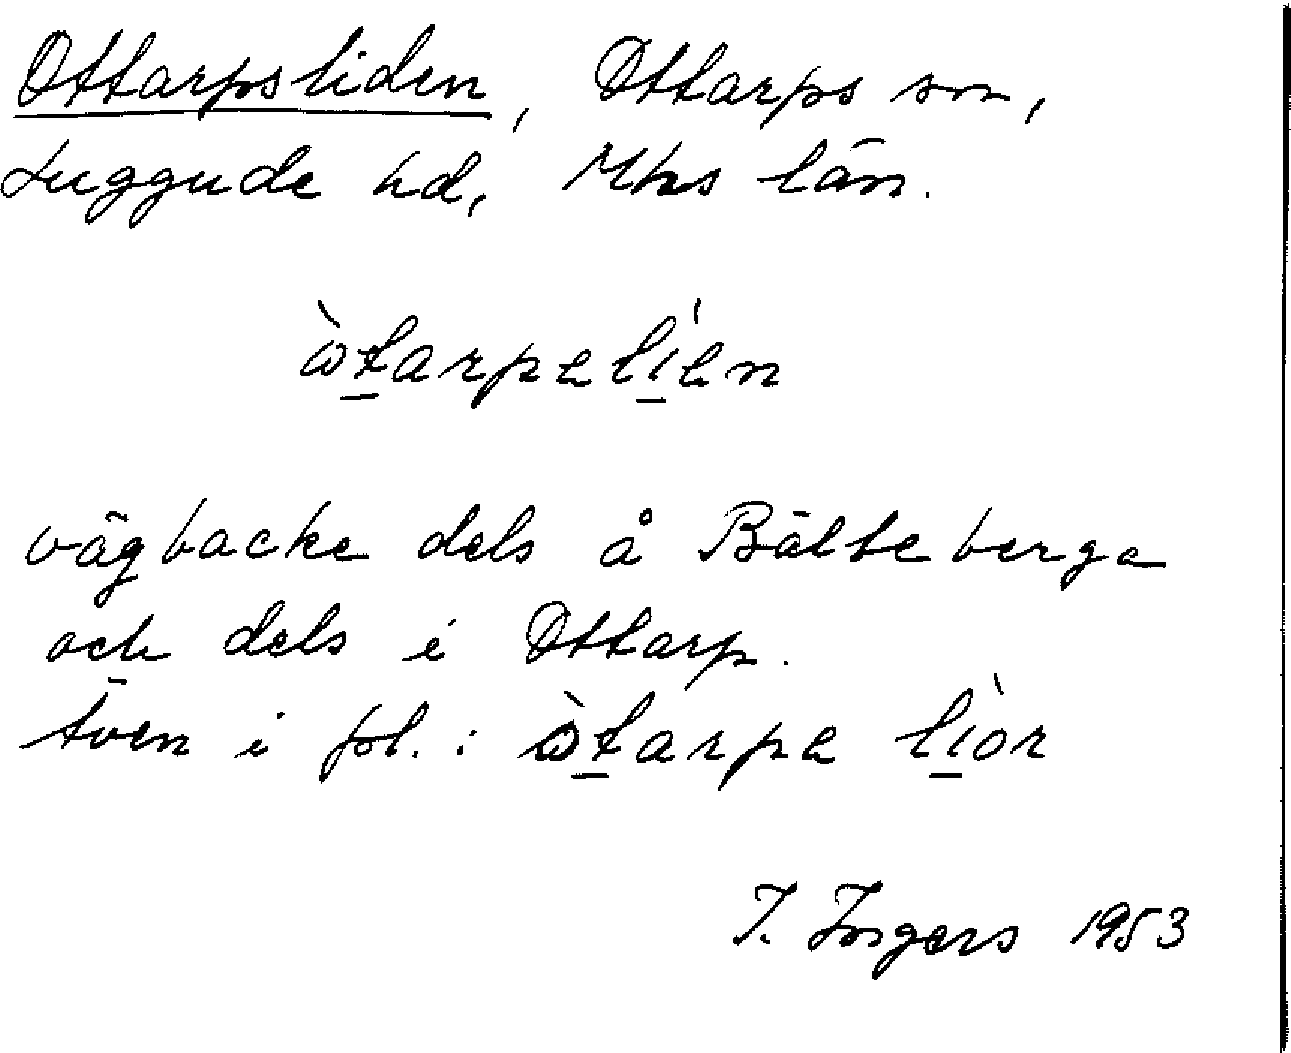 Ottarpsliden, Ottarps sn,
Luggude hd, Mhs län.
ὼt̲arpelí̲en
vägbacke dels å Bälteberga
och dels i Ottarp.
Även i pl. : ὼt̲arpe lì̲or
I. Ingers 1953